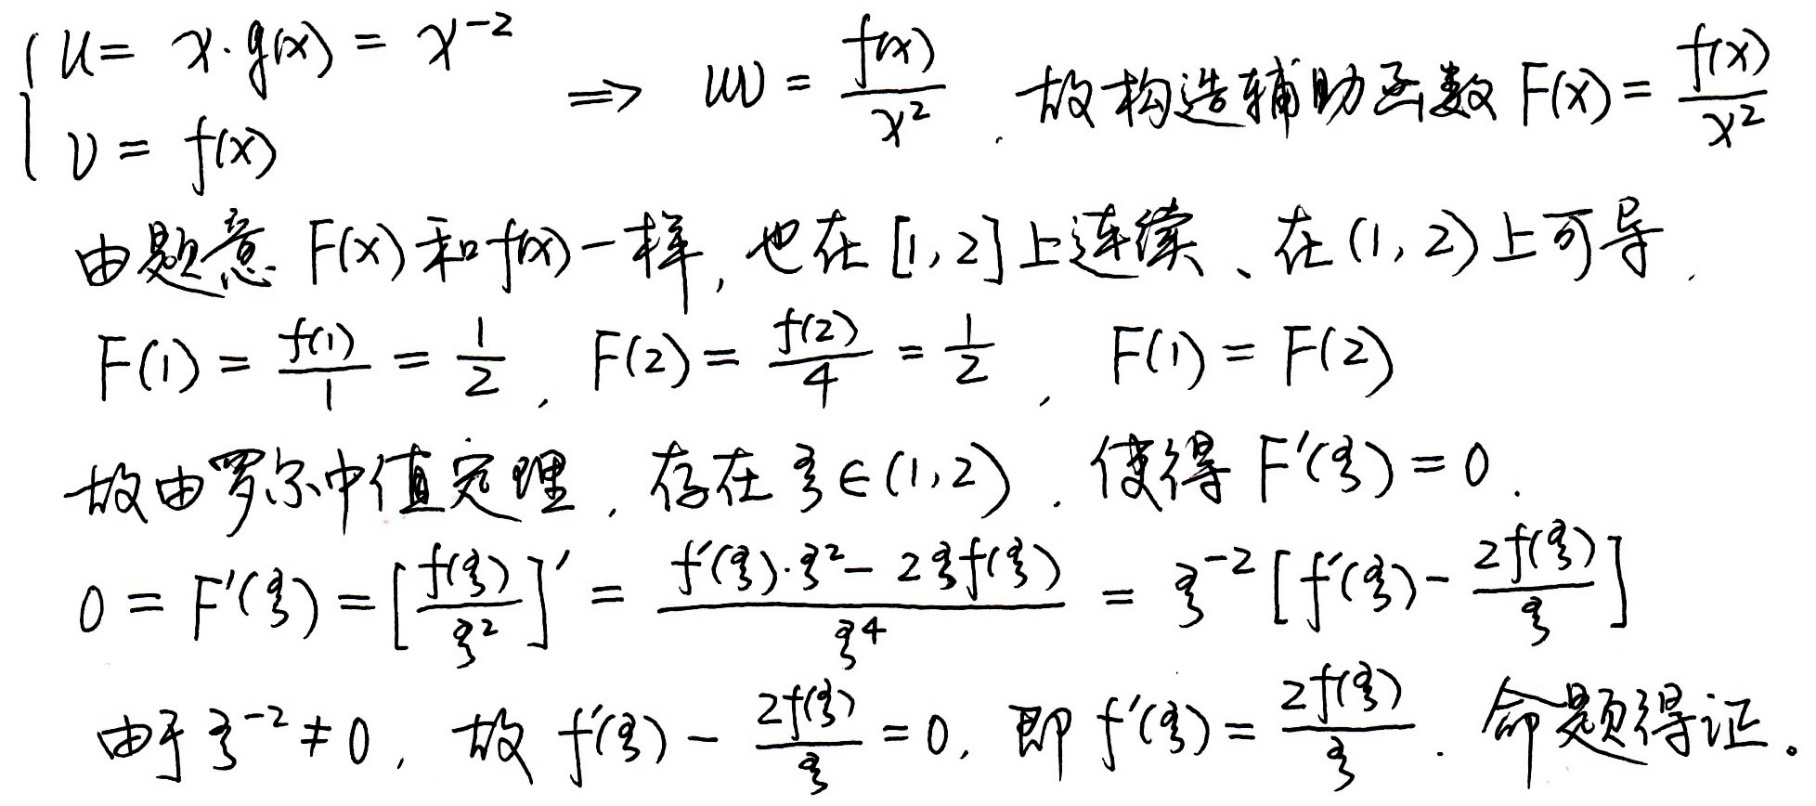 { u = x·g(x) = x⁻²
v = f(x)
⇒ uv = f(x)/x² . 故构造辅助函数 F(x) = f(x)/x²
由题意 F(x) 和 f(x) 一样, 也在 [1, 2] 上连续、在 (1, 2) 上可导.
F(1) = f(1)/1 = 1/2 , F(2) = f(2)/4 = 1/2 , F(1) = F(2)
故由罗尔中值定理, 存在 ξ∈(1,2) . 使得 F′(ξ) = 0 .
0 = F′(ξ) = [f(ξ)/ξ²]′ = (f′(ξ)·ξ² − 2ξf(ξ))/ξ⁴ = ξ⁻² [f′(ξ) − 2f(ξ)/ξ]
由于 ξ⁻² ≠ 0 , 故 f′(ξ) − 2f(ξ)/ξ = 0, 即 f′(ξ) = 2f(ξ)/ξ . 命题得证。